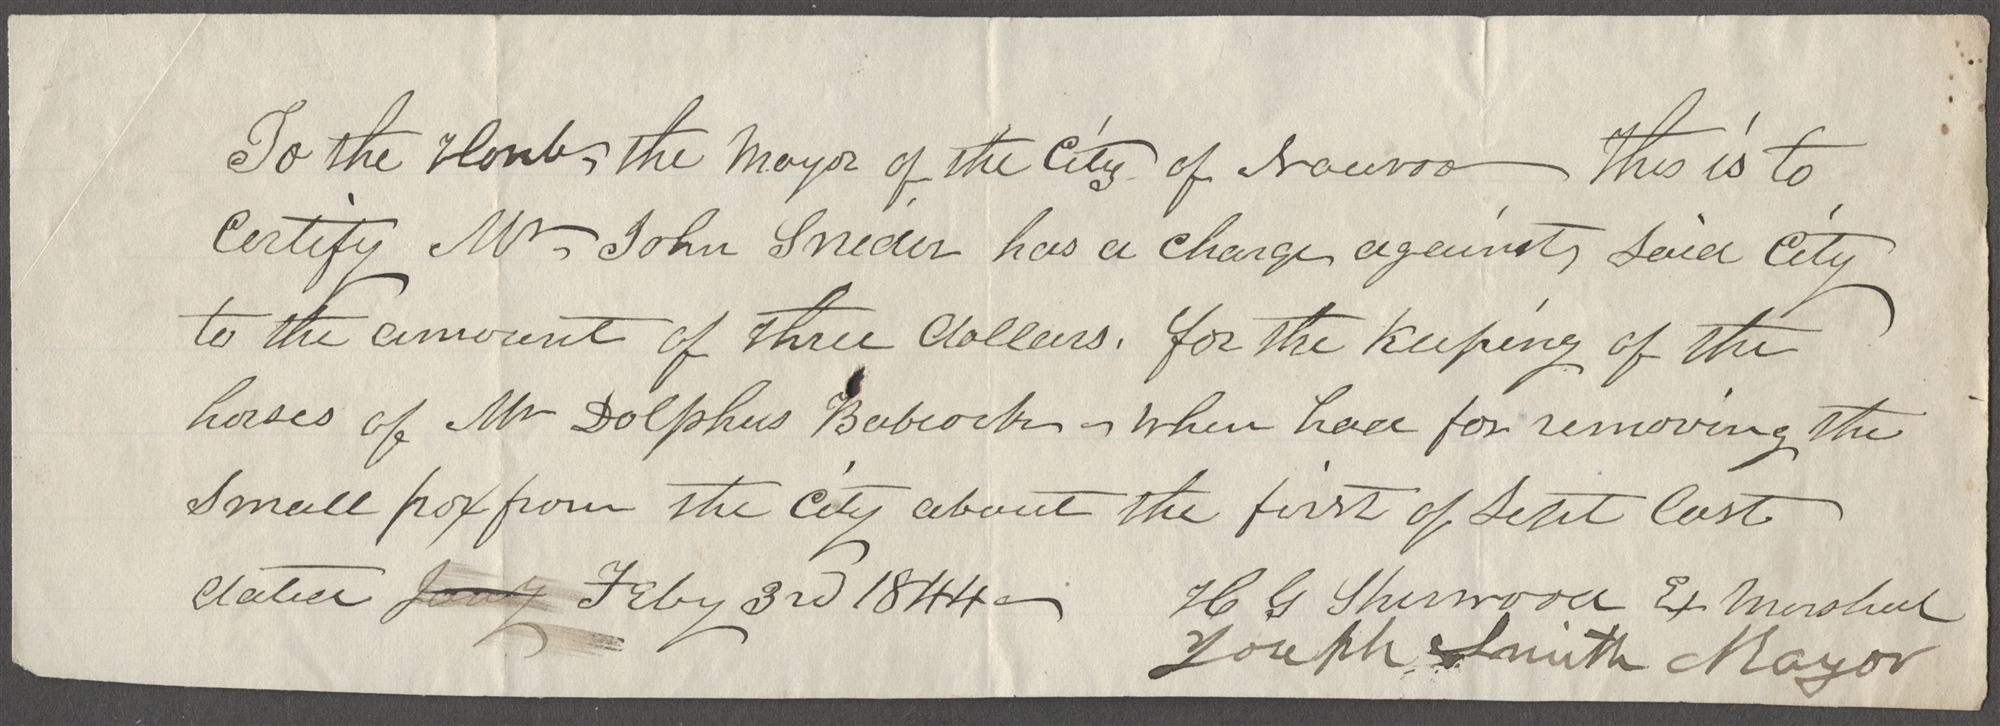 To the Honb, the Mayor of the City of Nauvoo This is to
Certify Mr John Snider has a charge against said City
to the amount of three dollars. for the keeping of the
horses of Mr Dolphus Babcock when had for removing the
small pox from the City about the first of Sept last
dated Jany Feby 3rd 1844
H G Sherwood Ex Marshall
Joseph Smith Mayor